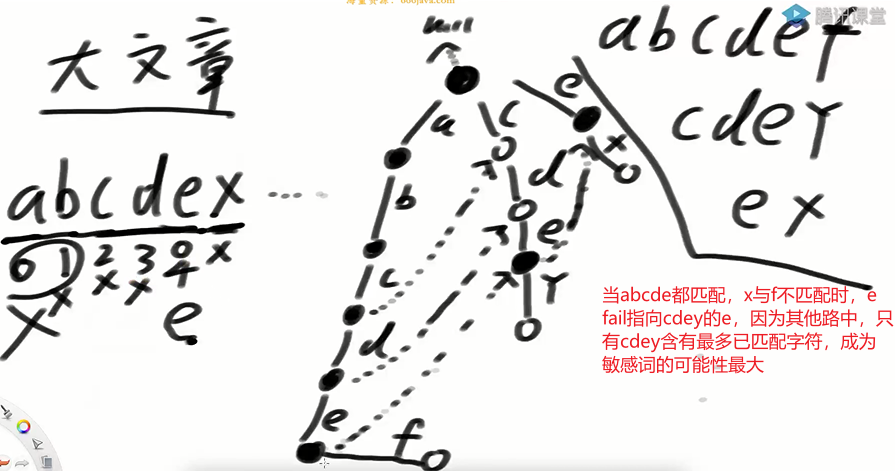 海量资源：666java.com
腾讯课堂
大文章
abcdex ....
0 1 2 3 4 x
x x x x 0
e
null
a
b
c
d
e
f
c
d
e
Y
e
x
abcdef
cdeY
ex
当abcde都匹配，x与f不匹配时，e
fail指向cdey的e，因为其他路中，只
有cdey含有最多已匹配字符，成为
敏感词的可能性最大